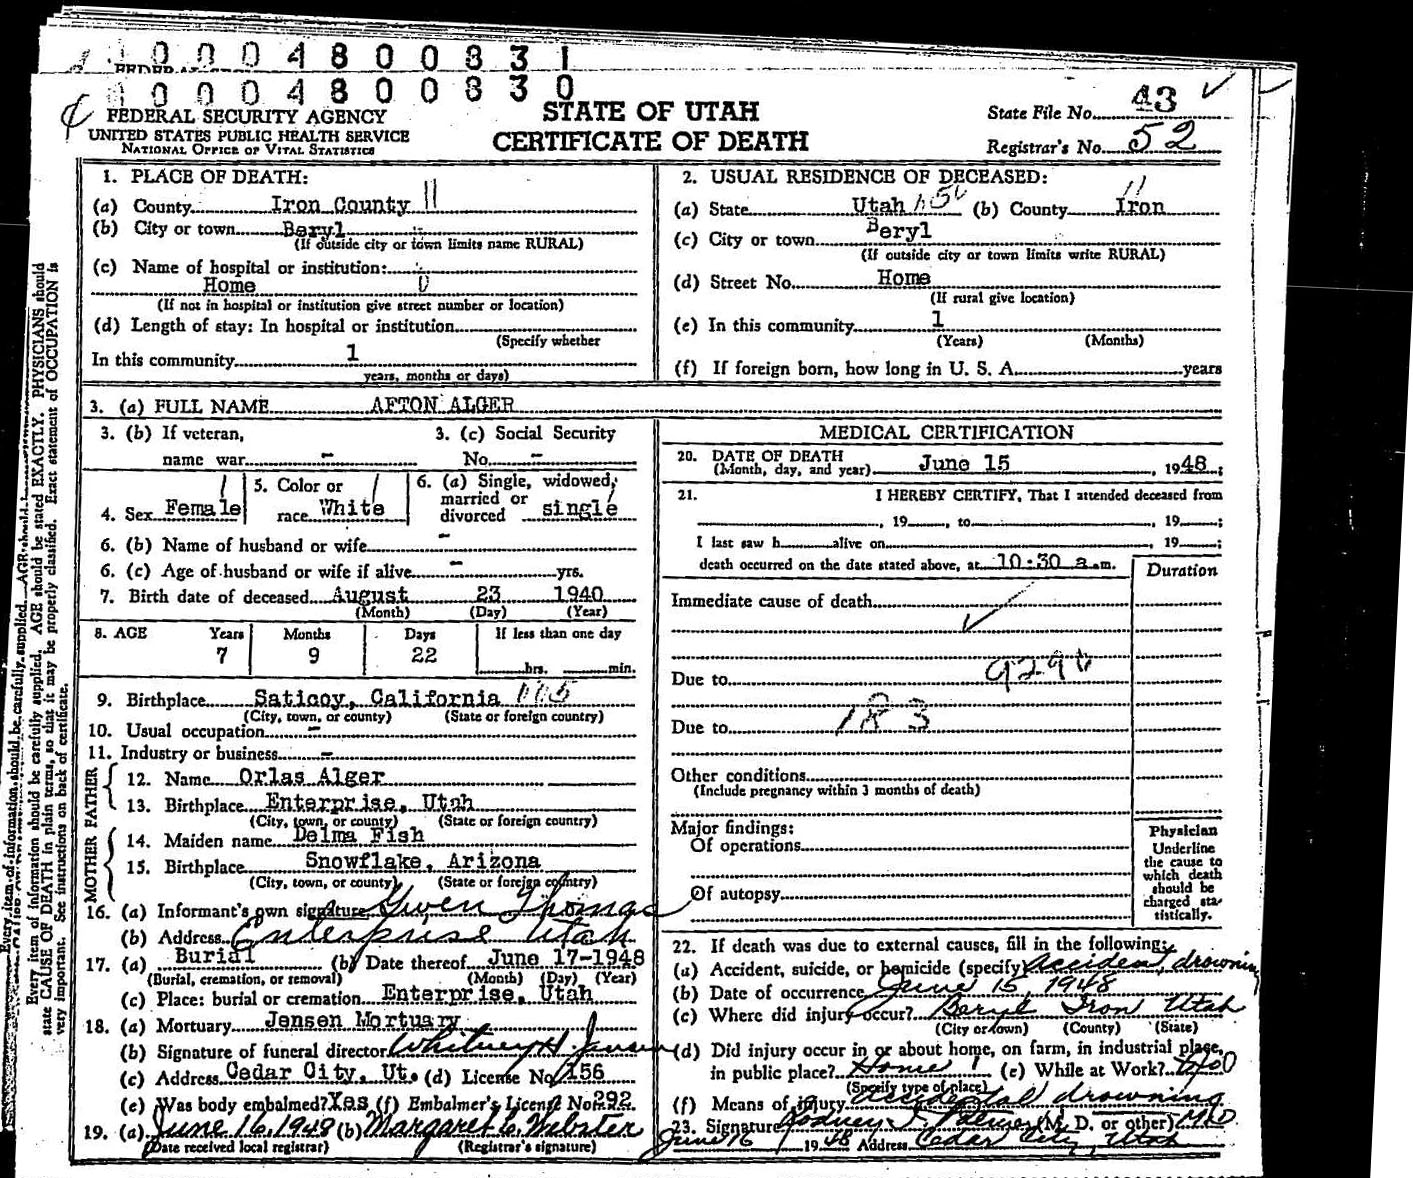 0 0 0 4 8 0 0 8 3 1
0 0 0 4 8 0 0 8 3 0
FEDERAL SECURITY AGENCY
UNITED STATES PUBLIC HEALTH SERVICE
NATIONAL OFFICE OF VITAL STATISTICS
STATE OF UTAH
CERTIFICATE OF DEATH
State File No. 43
Registrar's No. 52
1. PLACE OF DEATH:
(a) County Iron County 11
(b) City or town Beryl
(If outside city or town limits name RURAL)
(c) Name of hospital or institution:
Home 0
(If not in hospital or institution give street number or location)
(d) Length of stay: In hospital or institution
(Specify whether
In this community 1
years, months or days)
2. USUAL RESIDENCE OF DECEASED:
11
(a) State Utah (b) County Iron
(c) City or town Beryl
(If outside city or town limits write RURAL)
(d) Street No. Home
(If rural give location)
(e) In this community 1
(Years) (Months)
(f) If foreign born, how long in U. S. A. years
3. (a) FULL NAME AFTON ALGER
3. (b) If veteran, 3. (c) Social Security
name war - No. -
4. Sex Female
5. Color or
race White
6. (a) Single, widowed,
married or
divorced single
6. (b) Name of husband or wife -
6. (c) Age of husband or wife if alive - yrs.
7. Birth date of deceased August 23 1940
(Month) (Day) (Year)
8. AGE Years Months Days If less than one day
7 9 22 hrs. min.
9. Birthplace Saticoy, California
(City, town, or county) (State or foreign country)
10. Usual occupation -
11. Industry or business -
FATHER
12. Name Orlas Alger
13. Birthplace Enterprise, Utah
(City, town, or county) (State or foreign country)
MOTHER
14. Maiden name Delma Fish
15. Birthplace Snowflake, Arizona
(City, town, or county) (State or foreign country)
16. (a) Informant's own signature Gwen Thomas
(b) Address Enterprise Utah
17. (a) Burial (b) Date thereof June 17-1948
(Burial, cremation, or removal) (Month) (Day) (Year)
(c) Place: burial or cremation Enterprise, Utah
18. (a) Mortuary Jensen Mortuary
(b) Signature of funeral director Whitney H. Jensen
(c) Address Cedar City, Ut. (d) License No. 156
(e) Was body embalmed? Yes (f) Embalmer's License No. 292
19. (a) June 16, 1948 (b) Margaret C. Webster
(Date received local registrar) (Registrar's signature)
MEDICAL CERTIFICATION
20. DATE OF DEATH
(Month, day, and year) June 15, 1948;
21. I HEREBY CERTIFY, That I attended deceased from
, 19 , to , 19 ;
I last saw h alive on , 19 ;
death occurred on the date stated above, at 10:30 a.m.
Duration
Immediate cause of death
Due to 929
Due to 183
Other conditions
(Include pregnancy within 3 months of death)
Major findings:
Of operations
Of autopsy
Physician
Underline
the cause to
which death
should be
charged sta-
tistically.
22. If death was due to external causes, fill in the following:
(a) Accident, suicide, or homicide (specify) Accident, drowning
(b) Date of occurrence June 15, 1948
(c) Where did injury occur? Beryl Iron Utah
(City or town) (County) (State)
(d) Did injury occur in or about home, on farm, in industrial place,
in public place? Home (e) While at Work? No
(Specify type of place)
(f) Means of injury Accidental drowning
23. Signature (M. D. or other) MD
June 16 1948 Address Cedar City, Utah
Every item of information should be carefully supplied. AGE should be stated EXACTLY. PHYSICIANS should
state CAUSE OF DEATH in plain terms, so that it may be properly classified. Exact statement of OCCUPATION is
very important. See instructions on back of certificate.